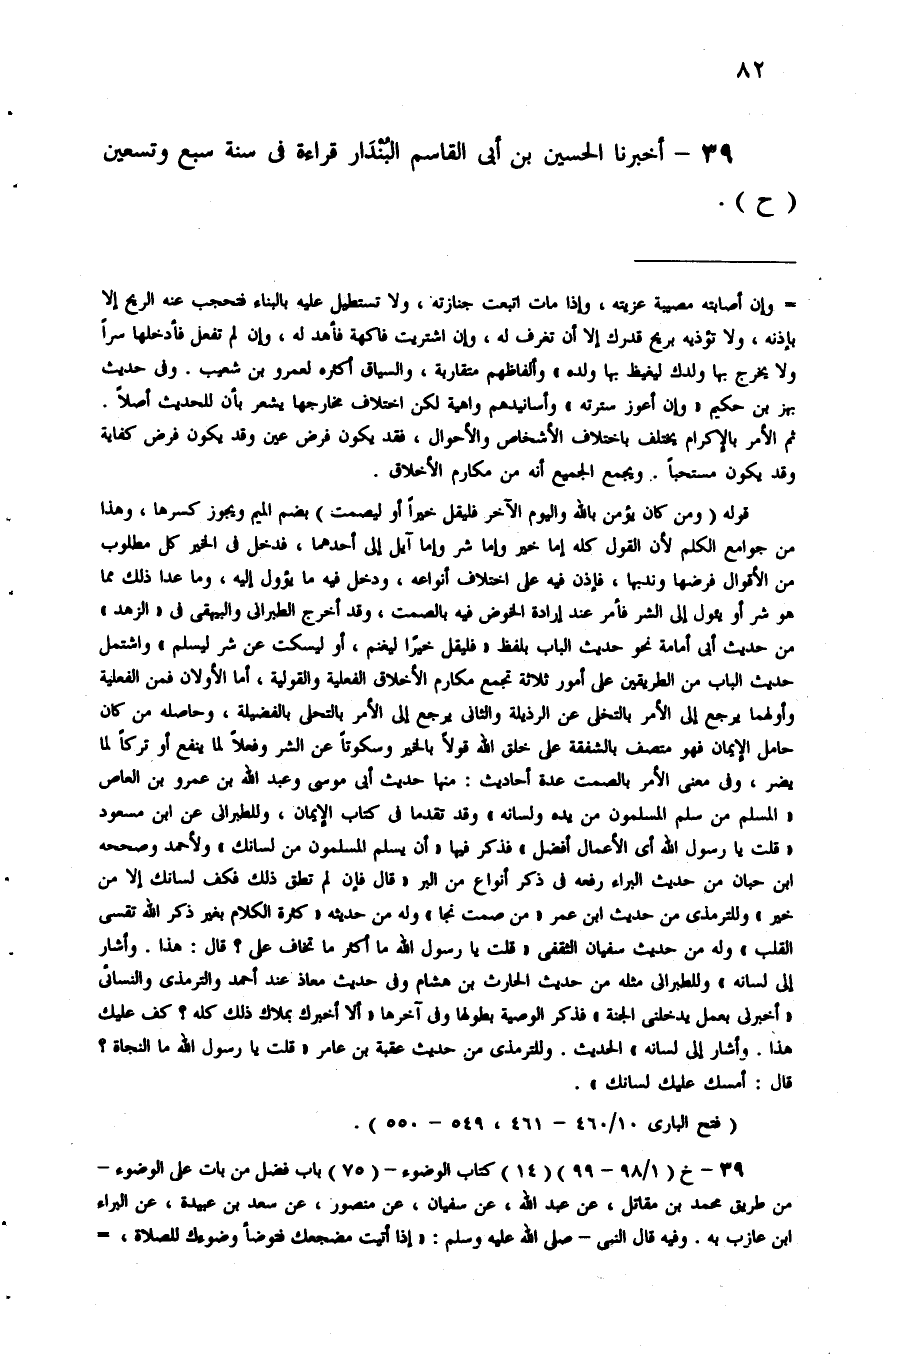 ٨٢
٣٩ – أخبرنا الحسين بن أبى القاسم البُنْدَار قراءة فى سنة سبع وتسعين
( ح ) .
= وإن أصابته مصيبة عزيته ، وإذا مات اتبعت جنازته ، ولا تستطيل عليه بالبناء فتحجب عنه الريح إلا
بإذنه ، ولا تؤذيه بريح قدرك إلا أن تغرف له ، وإن اشتريت فاكهة فأهد له ، وإن لم تفعل فأدخلها سراً
ولا يخرج بها ولدك ليغيظ بها ولده » وألفاظهم متقاربة ، والسياق أكثره لعمرو بن شعيب . وفى حديث
بهز بن حكيم « وإن أعوز سترته » وأسانيدهم واهية لكن اختلاف مخارجها يشعر بأن للحديث أصلاً .
ثم الأمر بالإكرام يختلف باختلاف الأشخاص والأحوال ، فقد يكون فرض عين وقد يكون فرض كفاية
وقد يكون مستحباً . ويجمع الجميع أنه من مكارم الأخلاق .
قوله ( ومن كان يؤمن بالله واليوم الآخر فليقل خيراً أو ليصمت ) بضم الميم ويجوز كسرها ، وهذا
من جوامع الكلم لأن القول كله إما خير وإما شر وإما آيل إلى أحدهما ، فدخل فى الخير كل مطلوب
من الأقوال فرضها وندبها ، فإذن فيه على اختلاف أنواعه ، ودخل فيه ما يؤول إليه ، وما عدا ذلك مما
هو شر أو يئول إلى الشر فأمر عند إرادة الخوض فيه بالصمت ، وقد أخرج الطبرانى والبيهقى فى « الزهد »
من حديث أبى أمامة نحو حديث الباب بلفظ « فليقل خيرًا ليغنم ، أو ليسكت عن شر ليسلم » واشتمل
حديث الباب من الطريقين على أمور ثلاثة تجمع مكارم الأخلاق الفعلية والقولية ، أما الأولان فمن الفعلية
وأولهما يرجع إلى الأمر بالتخلى عن الرذيلة والثانى يرجع إلى الأمر بالتحلى بالفضيلة ، وحاصله من كان
حامل الإيمان فهو متصف بالشفقة على خلق الله قولاً بالخير وسكوتاً عن الشر وفعلاً لما ينفع أو تركاً لما
يضر ، وفى معنى الأمر بالصمت عدة أحاديث : منها حديث أبى موسى وعبد الله بن عمرو بن العاص
« المسلم من سلم المسلمون من يده ولسانه » وقد تقدما فى كتاب الإيمان ، وللطبرانى عن ابن مسعود
« قلت يا رسول الله أى الأعمال أفضل » فذكر فيها « أن يسلم المسلمون من لسانك » ولأحمد وصححه
ابن حبان من حديث البراء رفعه فى ذكر أنواع من البر « قال فإن لم تطق ذلك فكف لسانك إلا من
خير » وللترمذى من حديث ابن عمر « من صمت نجا » وله من حديثه « كثرة الكلام بغير ذكر الله تقسى
القلب » وله من حديث سفيان الثقفى « قلت يا رسول الله ما أكثر ما تخاف على ؟ قال : هذا . وأشار
إلى لسانه » وللطبرانى مثله من حديث الحارث بن هشام وفى حديث معاذ عند أحمد والترمذى والنسائى
« أخبرنى بعمل يدخلنى الجنة » فذكر الوصية بطولها وفى آخرها « ألا أخبرك بملاك ذلك كله ؟ كف عليك
هذا . وأشار إلى لسانه » الحديث . وللترمذى من حديث عقبة بن عامر « قلت يا رسول الله ما النجاة ؟
قال : أمسك عليك لسانك » .
( فتح البارى ١٠/ ٤٦٠ – ٤٦١ ، ٥٤٩ – ٥٥٠ ) .
٣٩ – خ ( ١/ ٩٨ – ٩٩ ) ( ١٤ ) كتاب الوضوء – ( ٧٥ ) باب فضل من بات على الوضوء –
من طريق محمد بن مقاتل ، عن عبد الله ، عن سفيان ، عن منصور ، عن سعد بن عبيدة ، عن البراء
ابن عازب به . وفيه قال النبى – صلى الله عليه وسلم : « إذا أتيت مضجعك فتوضأ وضوءك للصلاة ، =